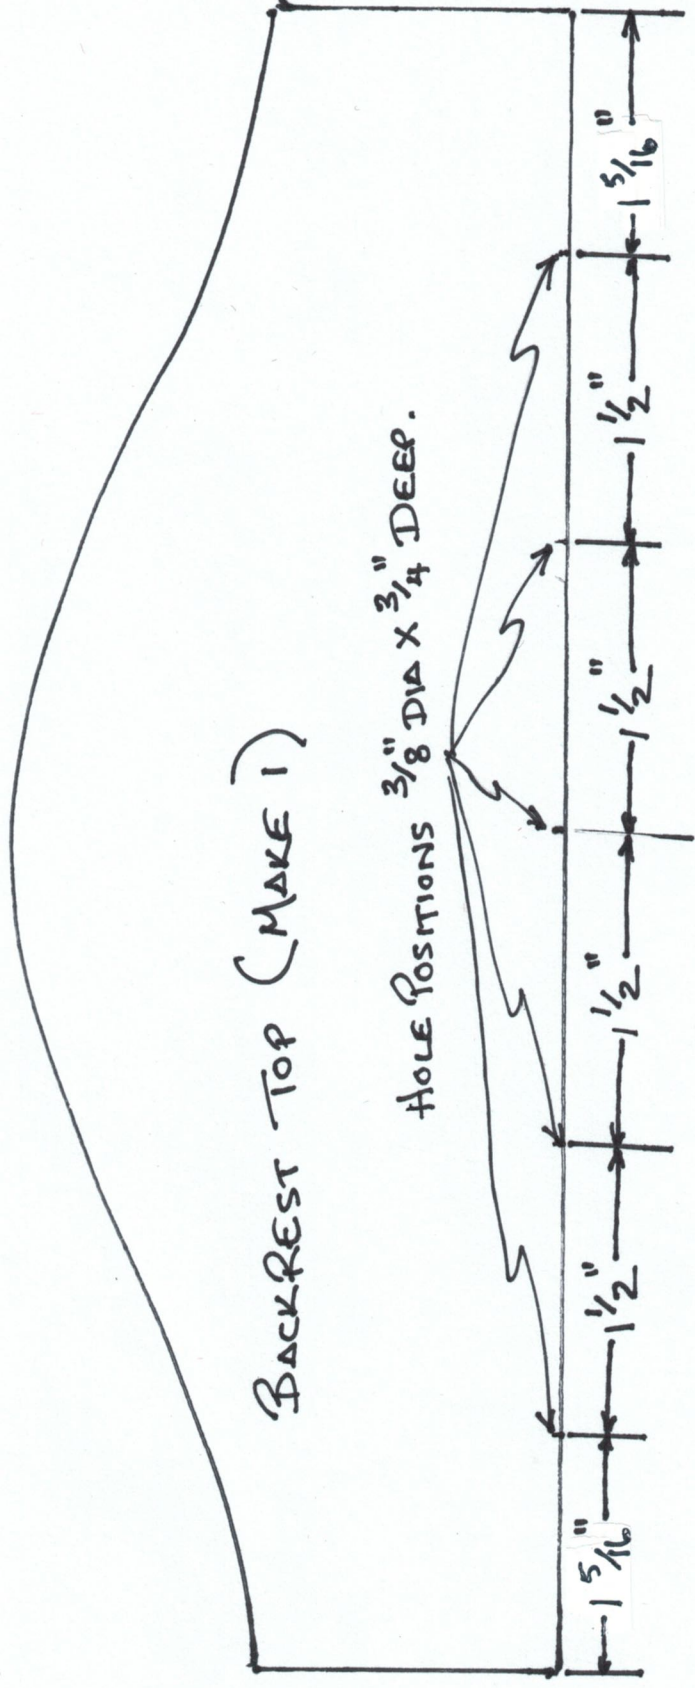 BACKREST TOP (MAKE 1)
HOLE POSITIONS 3/8" DIA X 3/4" DEEP.
1 5/16"
1 1/2"
1 1/2"
1 1/2"
1 1/2"
1 5/16"